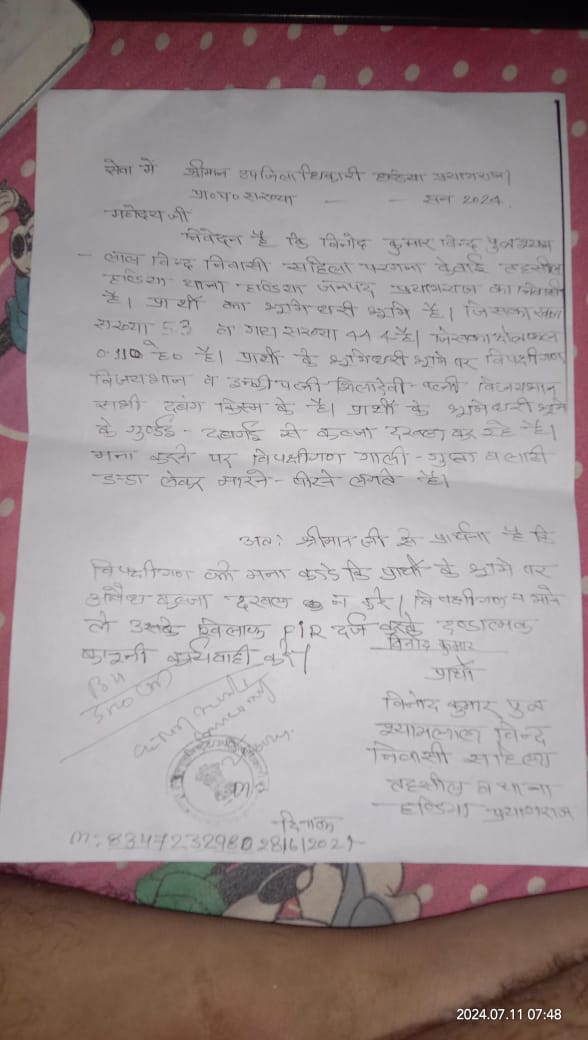 सेवा में श्रीमान उपजिलाधिकारी हण्डिया प्रयागराज।
प्रा०प० संख्या - - सन 2024
महोदय जी
निवेदन है कि विनोद कुमार बिन्द पुत्र श्याम
- लाल बिन्द निवासी सहिला परगना देवाई तहसील
हण्डिया थाना हण्डिया जनपद प्रयागराज का निवासी
है। प्रार्थी का भूमिधरी भूमि है। जिसका खाता
संख्या 53 व गाटा संख्या 444 है। जिसका क्षेत्रफल
0.110 हे० है। प्रार्थी के भूमिधरी भूमि पर विपक्षीगण
विजयभान व उनकी पत्नी शिलादेवी पत्नी विजयभान
सभी दबंग किस्म के है। प्रार्थी के भूमिधरी भूमि
के गुण्डई - दबंगई से कब्जा दखल कर रहे है।
मना करने पर विपक्षीगण गाली - गुप्ता व लाठी
डन्डा लेकर मारने - पीटने लगते है।
अतः श्रीमान जी से प्रार्थना है कि
विपक्षीगण को मना करदे कि प्रार्थी के भूमि पर
अवैध कब्जा दखल न करे। विपक्षीगण न माने
तो उसके खिलाफ FIR दर्ज करके दण्डात्मक
कानूनी कार्यवाही करे।
विनोद कुमार
प्रार्थी
विनोद कुमार पुत्र
श्यामलाल बिन्द
निवासी सहिला
तहसील व थाना
हण्डिया प्रयागराज
दिनांक
M:- 8347232980 28/6/2024
2024.07.11 07:48